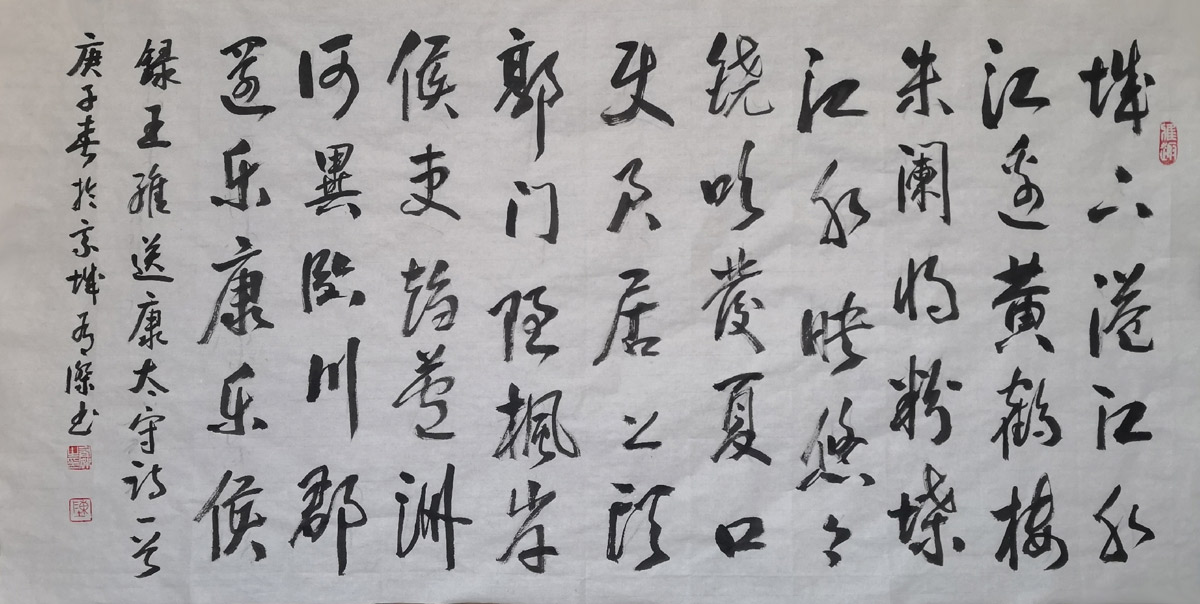 城下沧江水
江边黄鹤楼
朱阑将粉堞
江水映悠々
铙吹發夏口
使君居上头
郭门隐枫岸
候吏趋芦洲
何異臨川郡
还乐康乐侯
録王維送康太守诗一首
庚子春於京城有傑书